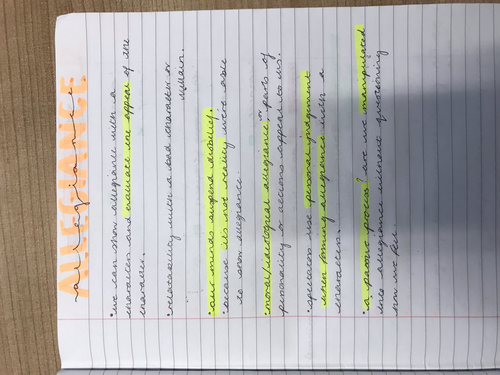 ALLEGIANCE
allegiance.
• we can show allegiance with a
character and evaluate the appeal of the
character.
• relatability with a bad character or
villain.
• our minds suspend disbelief.
because its not reality we're able
to show allegiance
• moral/idealogical allegiance, parts of
personality or actions appeal to us.
• spectators use personal judgement
when forming allegiance with a
character.
• a passive process? are we manipulated
into allegiance without questioning
how we feel